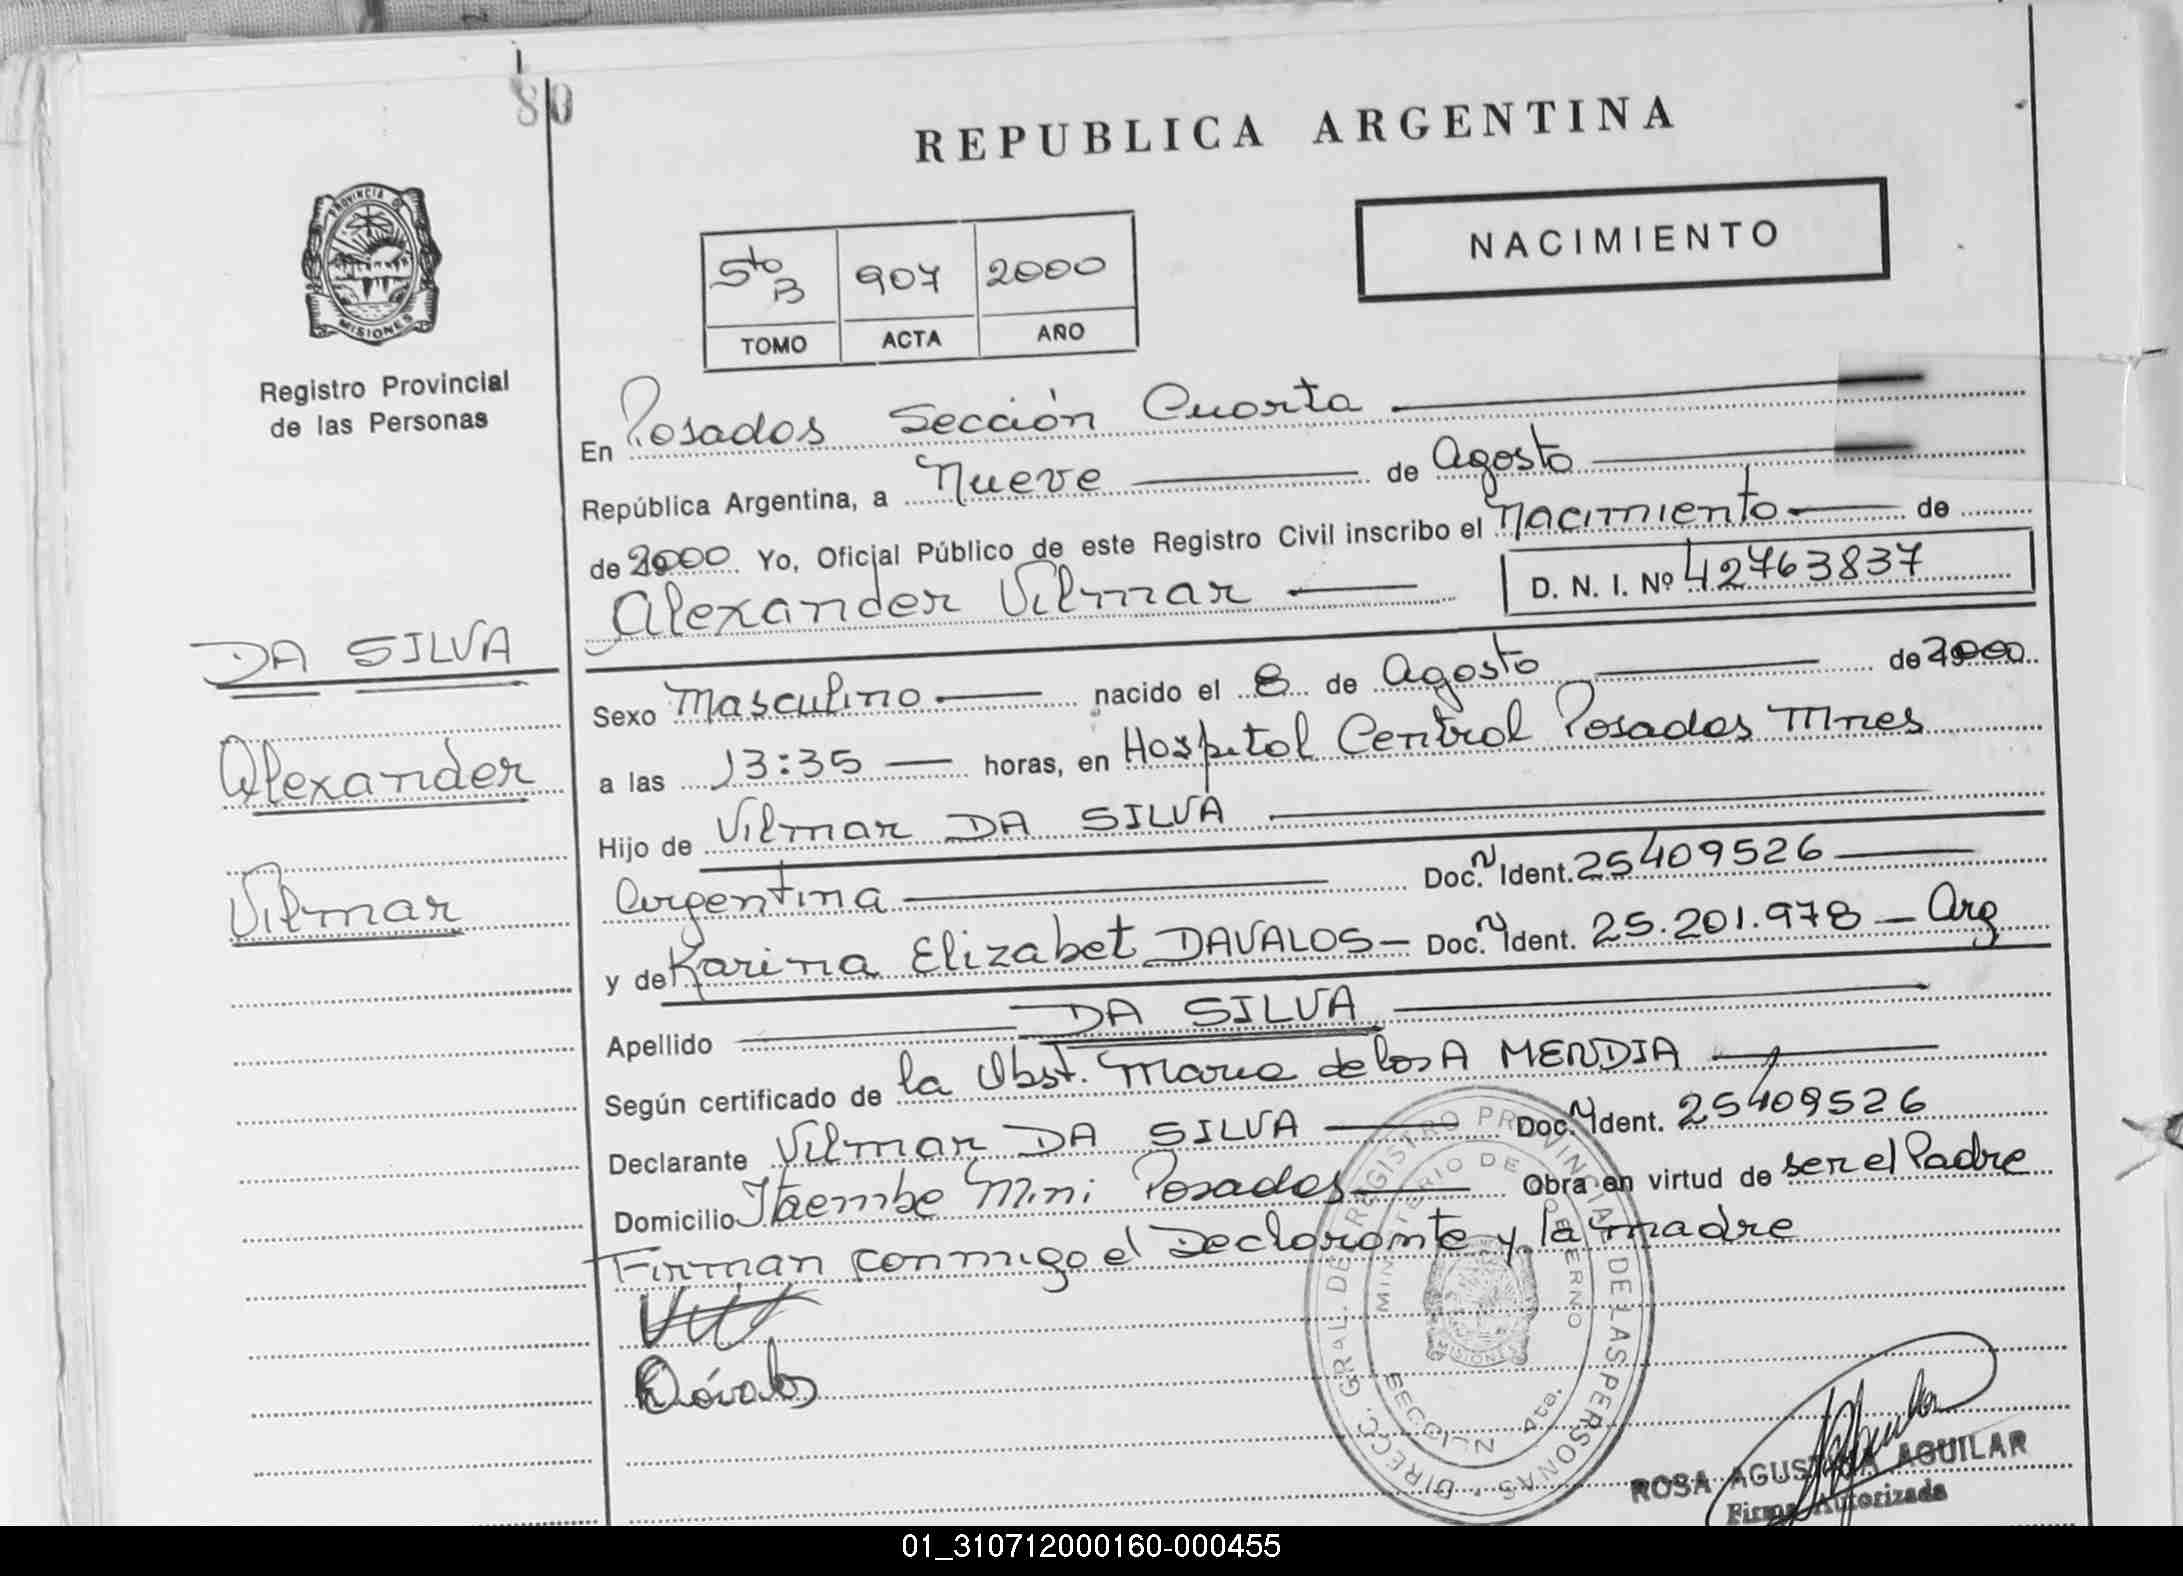 80
REPUBLICA ARGENTINA
PROVINCIA D
MISIONES
Registro Provincial
de las Personas
5to B 907 2000
TOMO ACTA AÑO
NACIMIENTO
En Posadas Sección Cuarta
República Argentina, a Nueve de Agosto
de 2000 Yo, Oficial Público de este Registro Civil inscribo el Nacimiento de
Alexander Vilmar D. N. I. Nº 42763837
DA SILVA
Alexander
Vilmar
Sexo Masculino nacido el 8 de Agosto de 2000
a las 13:35 horas, en Hospital Central Posadas Mnes
Hijo de Vilmar DA SILVA
Argentina Doc. N Ident. 25409526
y de Karina Elizabet DAVALOS Doc. N Ident. 25.201.978 Arg
Apellido DA SILVA
Según certificado de la Obst. Maria de los A MENDIA
Declarante Vilmar DA SILVA Doc. N Ident. 25409526
Domicilio Itaembe Mini Posadas Obra en virtud de ser el Padre
Firman conmigo el Declarante y la madre
Dávalos
DIRECC. GRAL. DE REGISTRO PROVINCIAL DE LAS PERSONAS
MINISTERIO DE GOBIERNO
MISIONES
SECCION 4ta.
ROSA AGUSTINA AGUILAR
Firma Autorizada
01_310712000160-000455